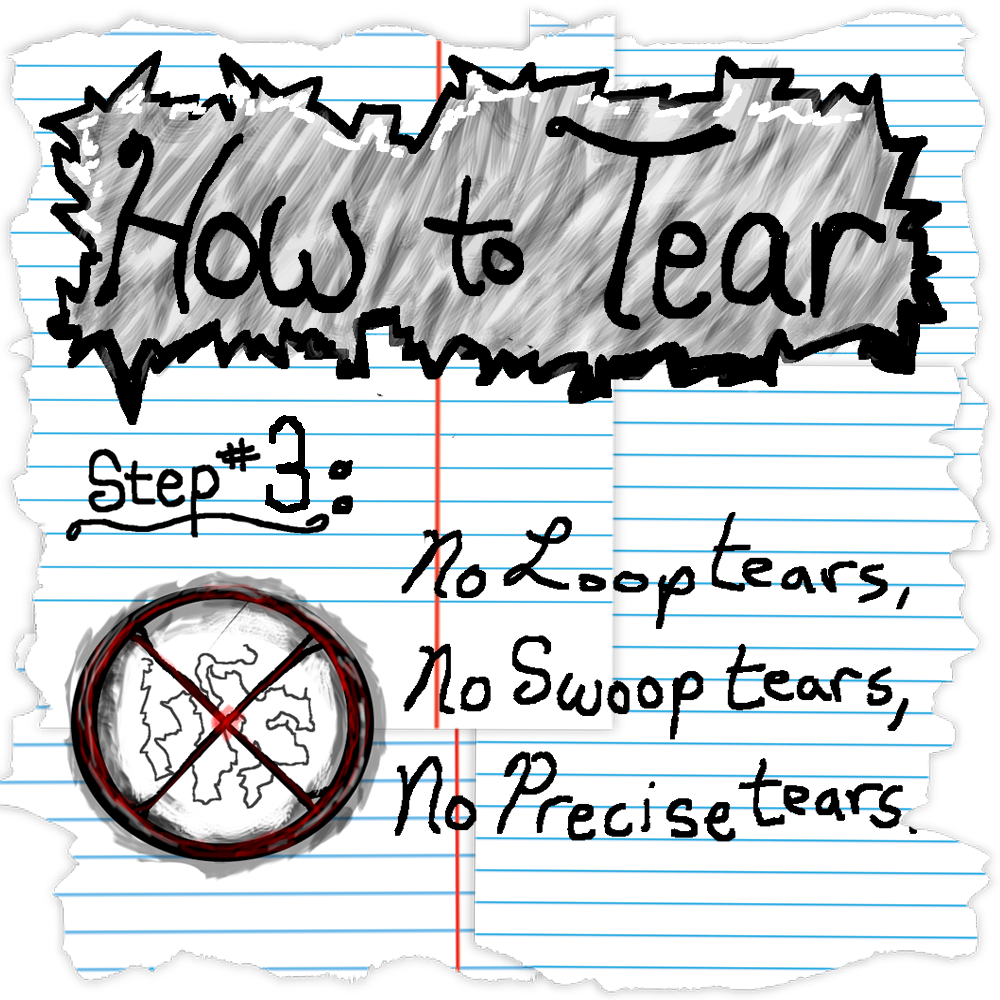 How to Tear
Step #3:
No Loop tears,
No Swoop tears,
No Precise tears.